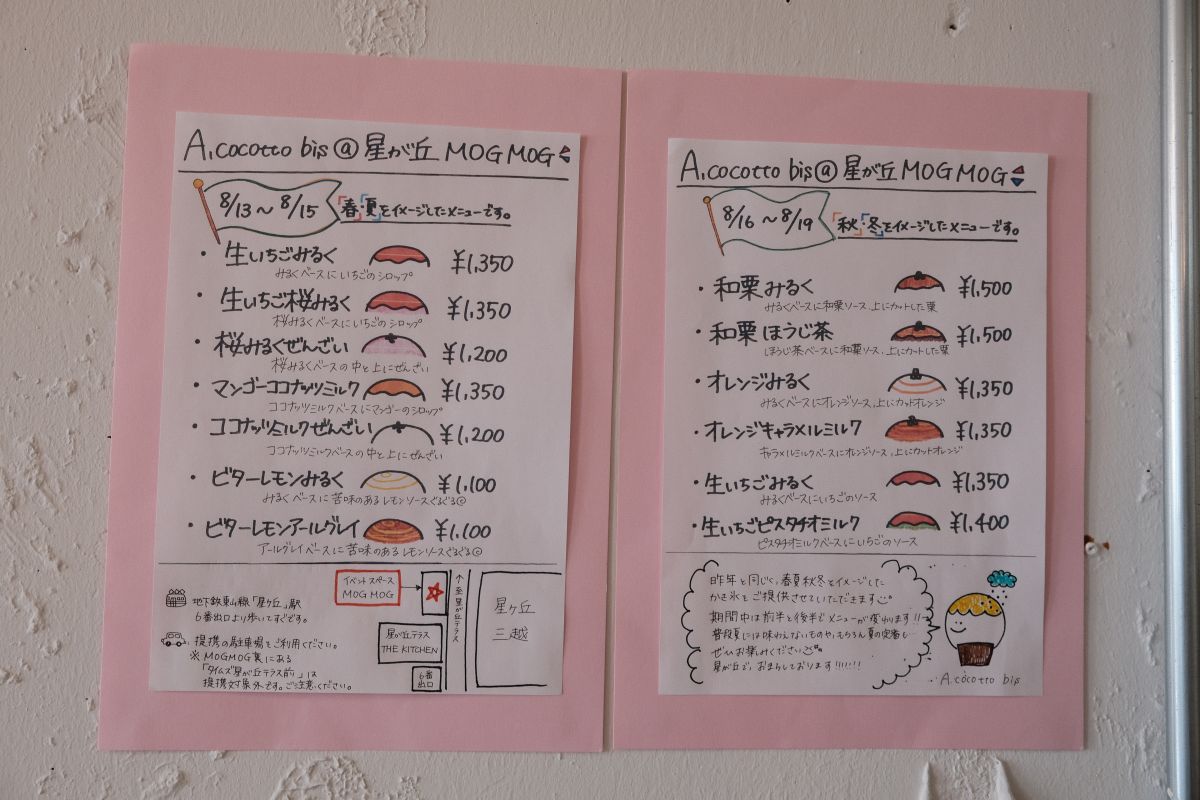 A.cocotto bis@星が丘 MOG MOG
8/13〜8/15 春・夏をイメージしたメニューです。
・生いちごみるく ¥1,350
みるくベースにいちごのシロップ
・生いちご桜みるく ¥1,350
桜みるくベースにいちごのシロップ
・桜みるくぜんざい ¥1,200
桜みるくベースの中と上にぜんざい
・マンゴーココナッツミルク ¥1,350
ココナッツミルクベースにマンゴーのシロップ
・ココナッツミルクぜんざい ¥1,200
ココナッツミルクベースの中と上にぜんざい
・ビターレモンみるく ¥1,100
みるくベースに苦味のあるレモンソースぐるぐる
・ビターレモンアールグレイ ¥1,100
アールグレイベースに苦味のあるレモンソースぐるぐる
地下鉄東山線「星ヶ丘」駅
6番出口より歩いてすぐです。
提携の駐車場をご利用ください。
※MOGMOG裏にある
「タイムズ星が丘テラス前」は
提携対象外です。ご注意ください。
イベントスペース
MOG MOG
星が丘テラス
THE KITCHEN
6番
出口
↑至星が丘テラス
星ヶ丘
三越
A.cocotto bis@星が丘 MOG MOG
8/16〜8/19 秋・冬をイメージしたメニューです。
・和栗みるく ¥1,500
みるくベースに和栗ソース、上にカットした栗
・和栗ほうじ茶 ¥1,500
ほうじ茶ベースに和栗ソース、上にカットした栗
・オレンジみるく ¥1,350
みるくベースにオレンジソース、上にカットオレンジ
・オレンジキャラメルミルク ¥1,350
キャラメルミルクベースにオレンジソース、上にカットオレンジ
・生いちごみるく ¥1,350
みるくベースにいちごのソース
・生いちごピスタチオミルク ¥1,400
ピスタチオミルクベースにいちごのソース
昨年と同じく、春夏秋冬をイメージした
かき氷をご提供させていただきます
期間中は前半と後半でメニューが変わります!!
普段夏には味わえないものや、もちろん夏の定番も…
ぜひお楽しみください
星が丘で、おまちしております!!!!!
A.cocotto bis